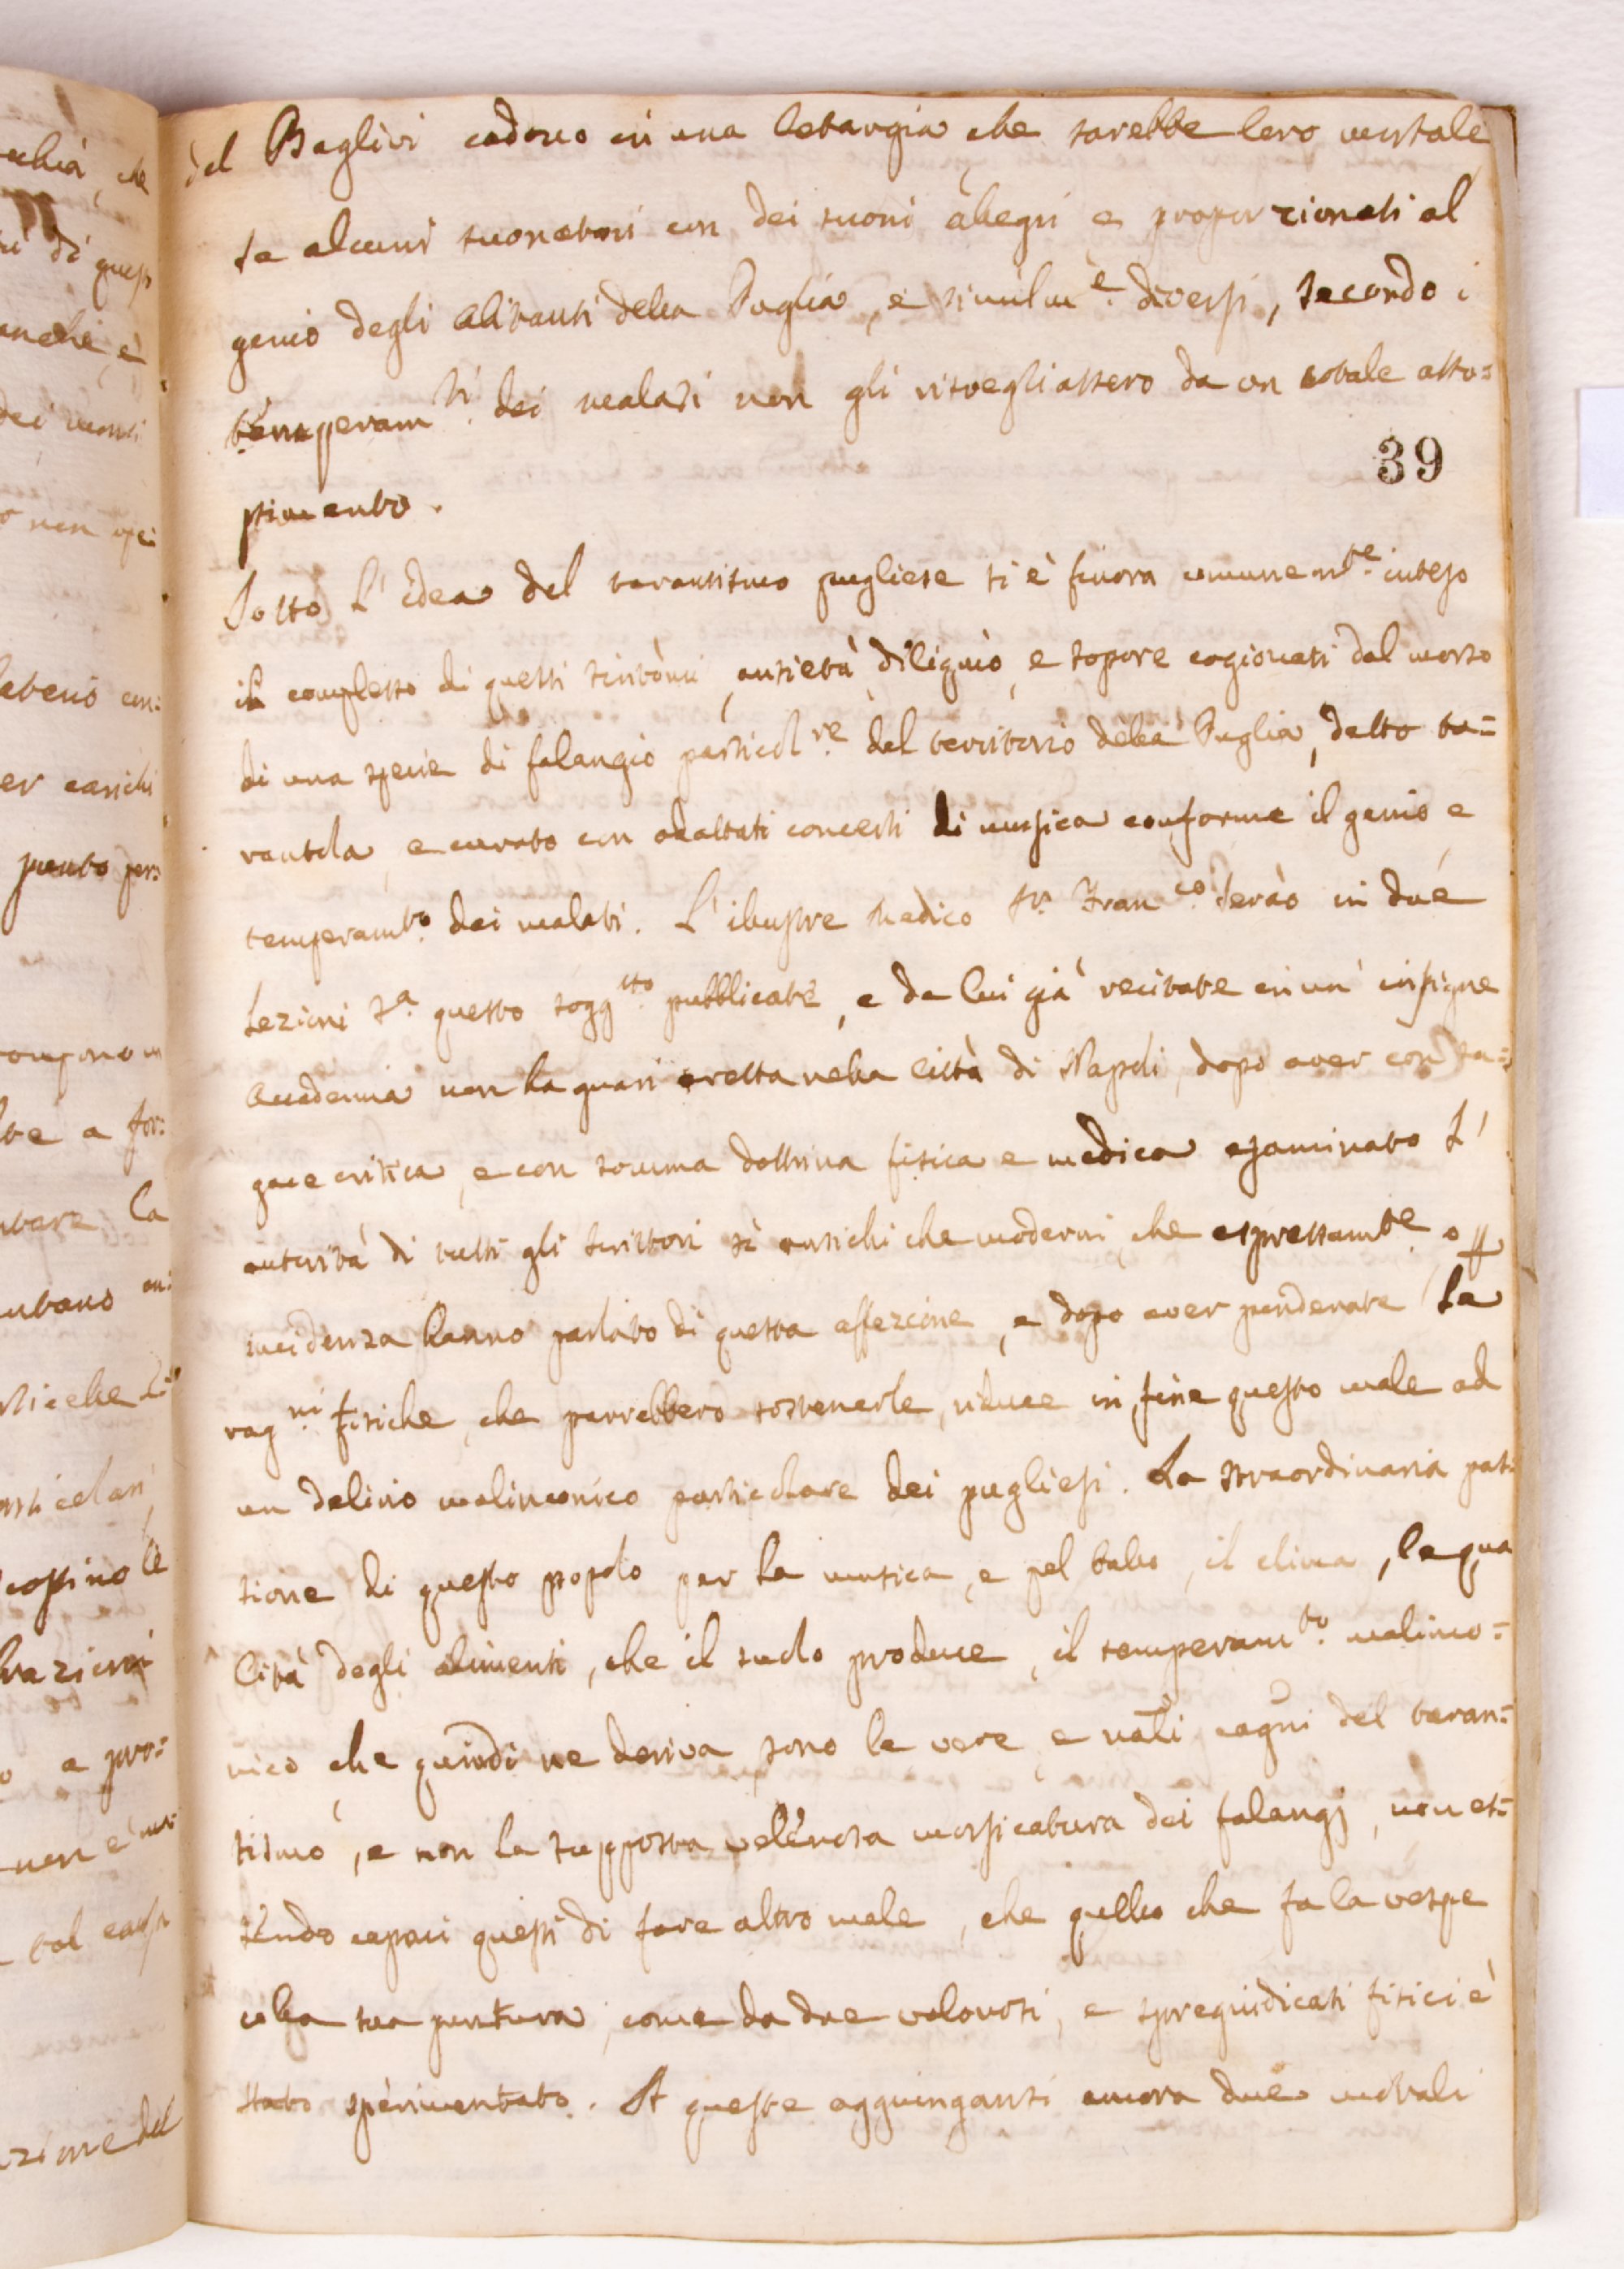 del Baglivi cadono in una letargia che sarebbe loro mortale
se alcuni suonatori con dei suoni allegri e proporzionati al
genio degli abitanti della Puglia, e similm.e diversi, secondo i
temperam.ti dei malati non gli risvegliassero da un total asso=
39
pimento.
Sotto l'idea del tarantismo pugliese si è finora comunem.te inteso
il complesso di questi sintòmi, ansietà, diliquio, e sopore cagionati dal morso
di una specie di falangio particol.re del territorio della Puglia, detto ta=
rantola, e curato con adattati concerti di musica conforme il genio e
temperam.to dei malati. L'illustre Medico Sr. Fran.co Serao in due
Lezioni s.a questo sogg.tto pubblicate, e da lui già recitate in un' insigne
Accademia non ha guari eretta nella Città di Napoli, dopo aver con sa=
gace critica, e con somma dottrina fisica e medica esaminato l'
autorità di tutti gli scrittori sì antichi che moderni, che espressam.te o #
incidenza hanno parlato di questa affezione, e dopo aver ponderate la
rag.ni fisiche, che parrebbero sostenerle, riduce in fine questo male ad
un delirio malinconico particolare dei pugliesi. La straordinaria pas=
sione di questo popolo per la musica, e pel ballo, il clima, la qua
lità degli alimenti, che il suolo produce, il temperam.to malinco=
nico che quindi ne deriva sono le vere, e nãli cagni del taran=
tismo, e non la supposta velenosa morsicatura dei falangj, non es=
sendo capaci questi di fare altro male, che quello che fa la vespe
colla sua puntura, come da due valorosi, e spregiudicati fisici è
stato sperimentato. A queste aggiungansi ancora due morali